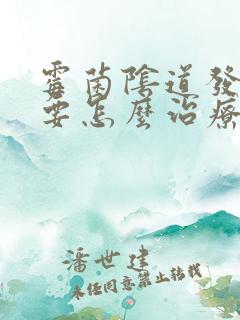 霉菌陰道發
要怎麼治療
潘世建
未經同意禁止轉載